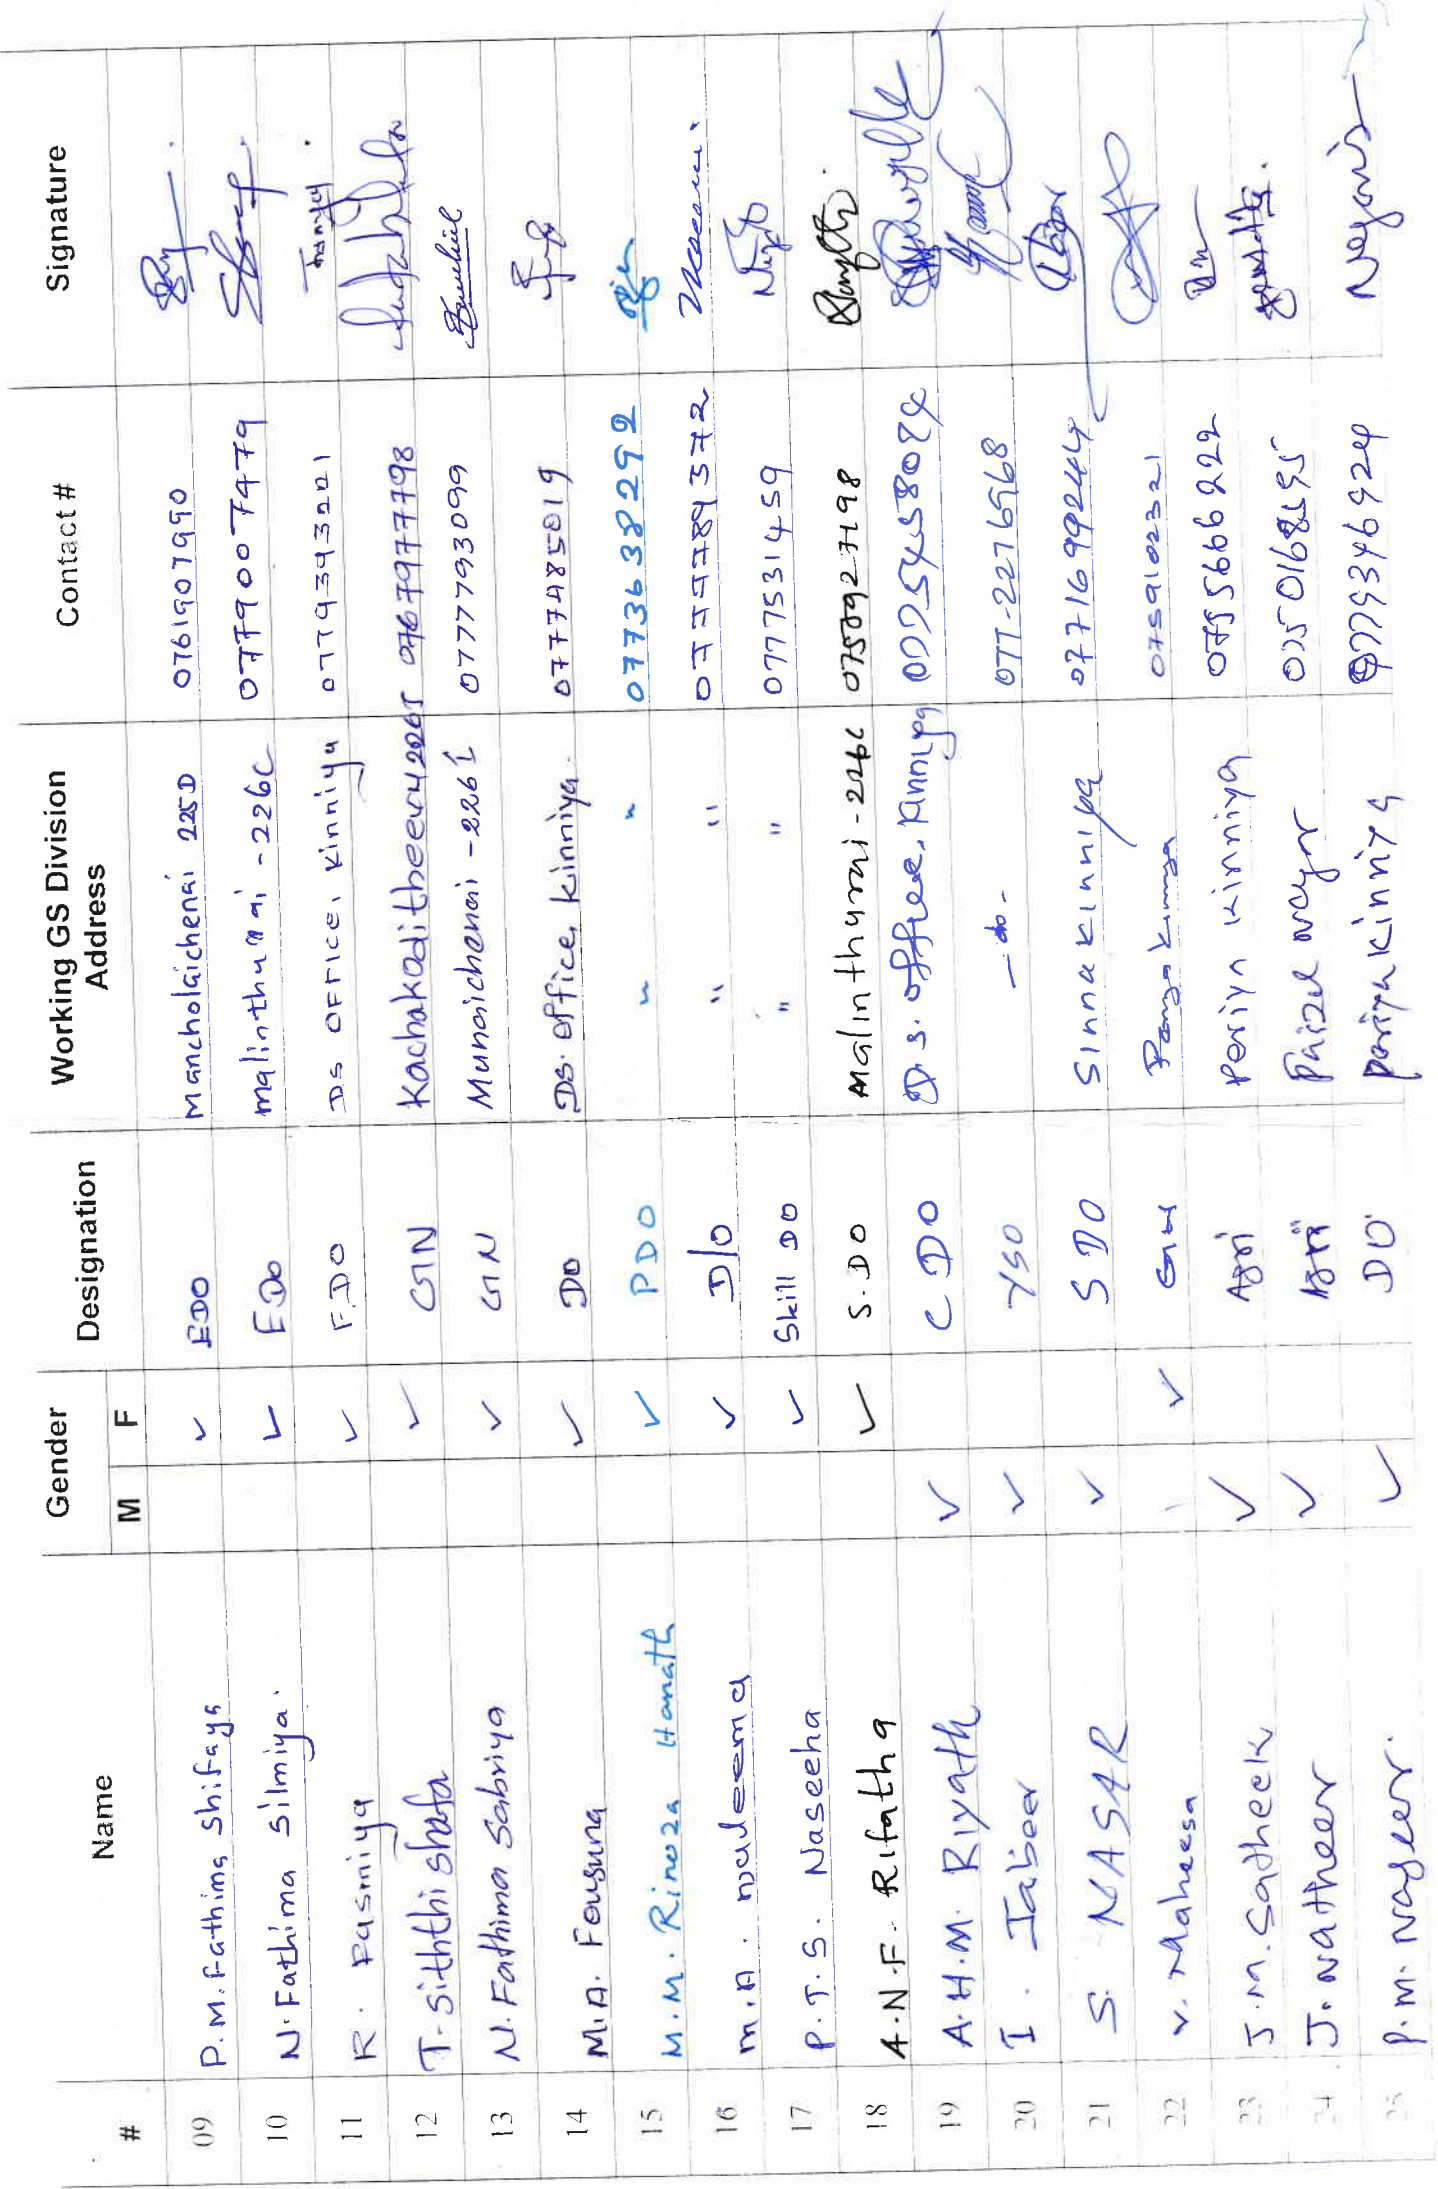 # Name Gender Designation Working GS Division Address Contact # Signature
M F
09 P.M. Fathima Shifaya EDO Mancholaichenai 225D 0761907990
10 N. Fathima Silmiya. E.Do malinthurai - 226C 0779007479
11 R. Fasmiya F.DO DS OFFICE, Kinniya 0779393221
12 T. Siththi Shafa GN Kachakoditheevu 226J 0767977798
13 N. Fathima Sabriya GN Munaichenai - 226I 0777793099
14 M.A. Fousuna DO DS. Office, Kinniya. 0777485019
15 M.M. Rinoza Hanath PDO " " 0773638292
16 M.A. Nadeema D/O " "
17 P.T.S. Naseeha Skill DO " " 0777531459
18 A.N.F. Rifatha S.DO Malinthurai - 226C
19 A.H.M. Riyath CDO D.S. office, Kinniya
20 I. Jabeer YSO - do - 077-2276968
21 S. NASAR SDO Sinnakinniya
22 V. GN 0759102321
23 J.M. Satheek Agri Periya Kinniya 0755666222
24 J. Natheer Agri Faizal nagar
25 P.M. Najeer. DO Periya Kinniya